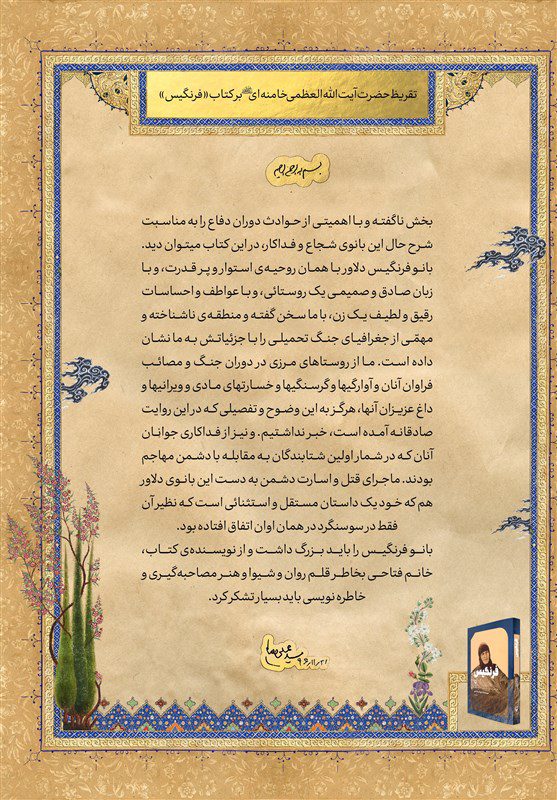 تقریظ حضرت آیت الله العظمی خامنه ای بر کتاب «فرنگیس»
بخش ناگفته و با اهمیتی از حوادث دوران دفاع را به مناسبت
شرح حال این بانوی شجاع و فداکار، در این کتاب میتوان دید.
بانو فرنگیس دلاور با همان روحیه‌ی استوار و پر قدرت، و با
زبان صادق و صمیمی یک روستائی، و با عواطف و احساسات
رقیق و لطیف یک زن، با ما سخن گفته و منطقه‌ی ناشناخته و
مهمّی از جغرافیای جنگ تحمیلی را با جزئیاتش به ما نشان
داده است. ما از روستاهای مرزی در دوران جنگ و مصائب
فراوان آنان و آوارگیها و گرسنگیها و خسارتهای مادی و ویرانیها و
داغ عزیزان آنها، هرگز به این وضوح و تفصیلی که در این روایت
صادقانه آمده است، خبر نداشتیم. و نیز از فداکاری جوانان
آنان که در شمار اولین شتابندگان به مقابله با دشمن مهاجم
بودند. ماجرای قتل و اسارت دشمن به دست این بانوی دلاور
هم که خود یک داستان مستقل و استثنائی است که نظیر آن
فقط در سوسنگرد در همان اوان اتفاق افتاده بود.
بانو فرنگیس را باید بزرگ داشت و از نویسنده‌ی کتاب،
خانم فتاحی بخاطر قلم روان و شیوا و هنر مصاحبه‌گیری و
خاطره نویسی باید بسیار تشکر کرد.
فرنگیس